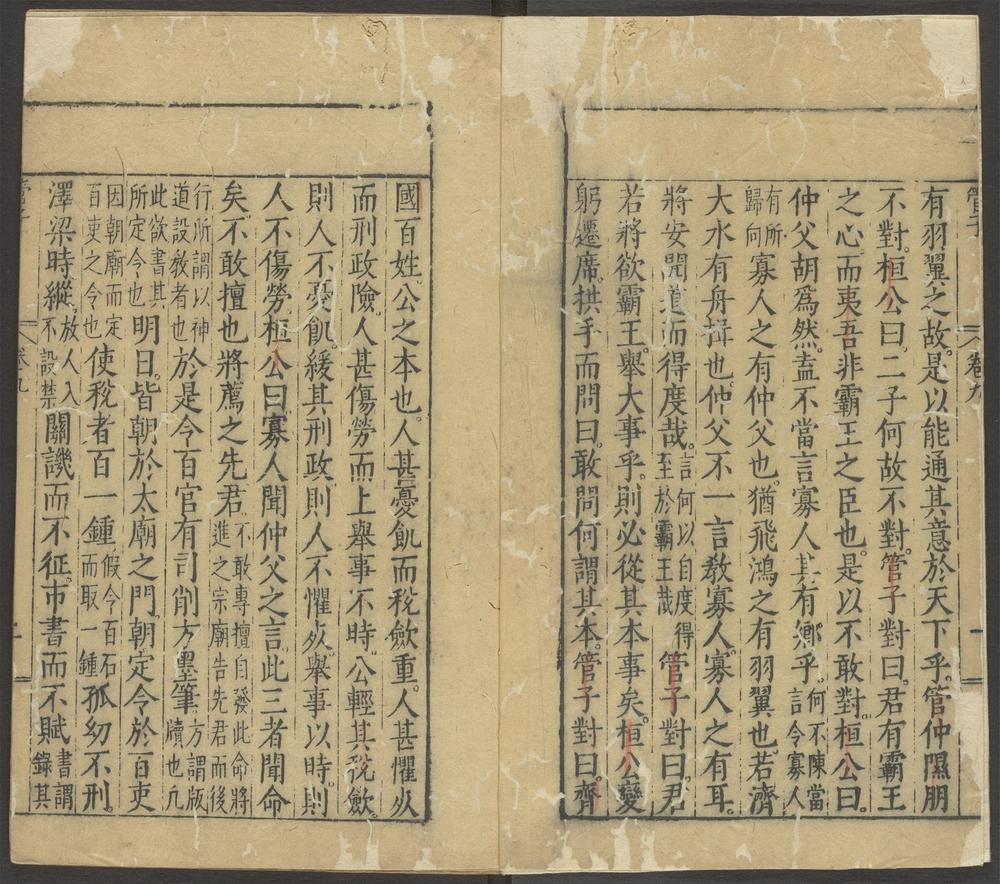 管子
卷九
有羽翼之故是以能通其意於天下乎管仲隰朋
不對桓公曰二子何故不對管子對曰君有霸王
之心而夷吾非霸王之臣也是以不敢對桓公曰
仲父胡爲然盍不當言寡人其有鄉乎何不陳當言令寡人
有所歸向寡人之有仲父也猶飛鴻之有羽翼也若濟
大水有舟揖也仲父不一言教寡人寡人之有耳
將安聞道而得度哉言何以自度得至於霸王哉管子對曰君
若將欲霸王舉大事乎則必從其本事矣桓公變
躬遷席拱手而問曰敢問何謂其本管子對曰齊
國百姓公之本也人甚憂飢而稅斂重人甚懼死
而刑政險人甚傷勞而上舉事不時公輕其稅斂
則人不憂飢緩其刑政則人不懼死舉事以時則
人不傷勞桓公曰寡人聞仲父之言此三者聞命
矣不敢擅也將薦之先君不敢專擅自發此命將進之宗廟告先君而後
行所謂以神道設教者也於是令百官有司削方墨筆方謂版牘也凡
此欲書其所定令也明日皆朝於太廟之門朝定令於百吏
因朝廟而定百吏之令也使稅者百一鍾假令百石而取一鍾孤幼不刑
澤梁時縱放人入不設禁關譏而不征市書而不賦書謂錄其
卷九